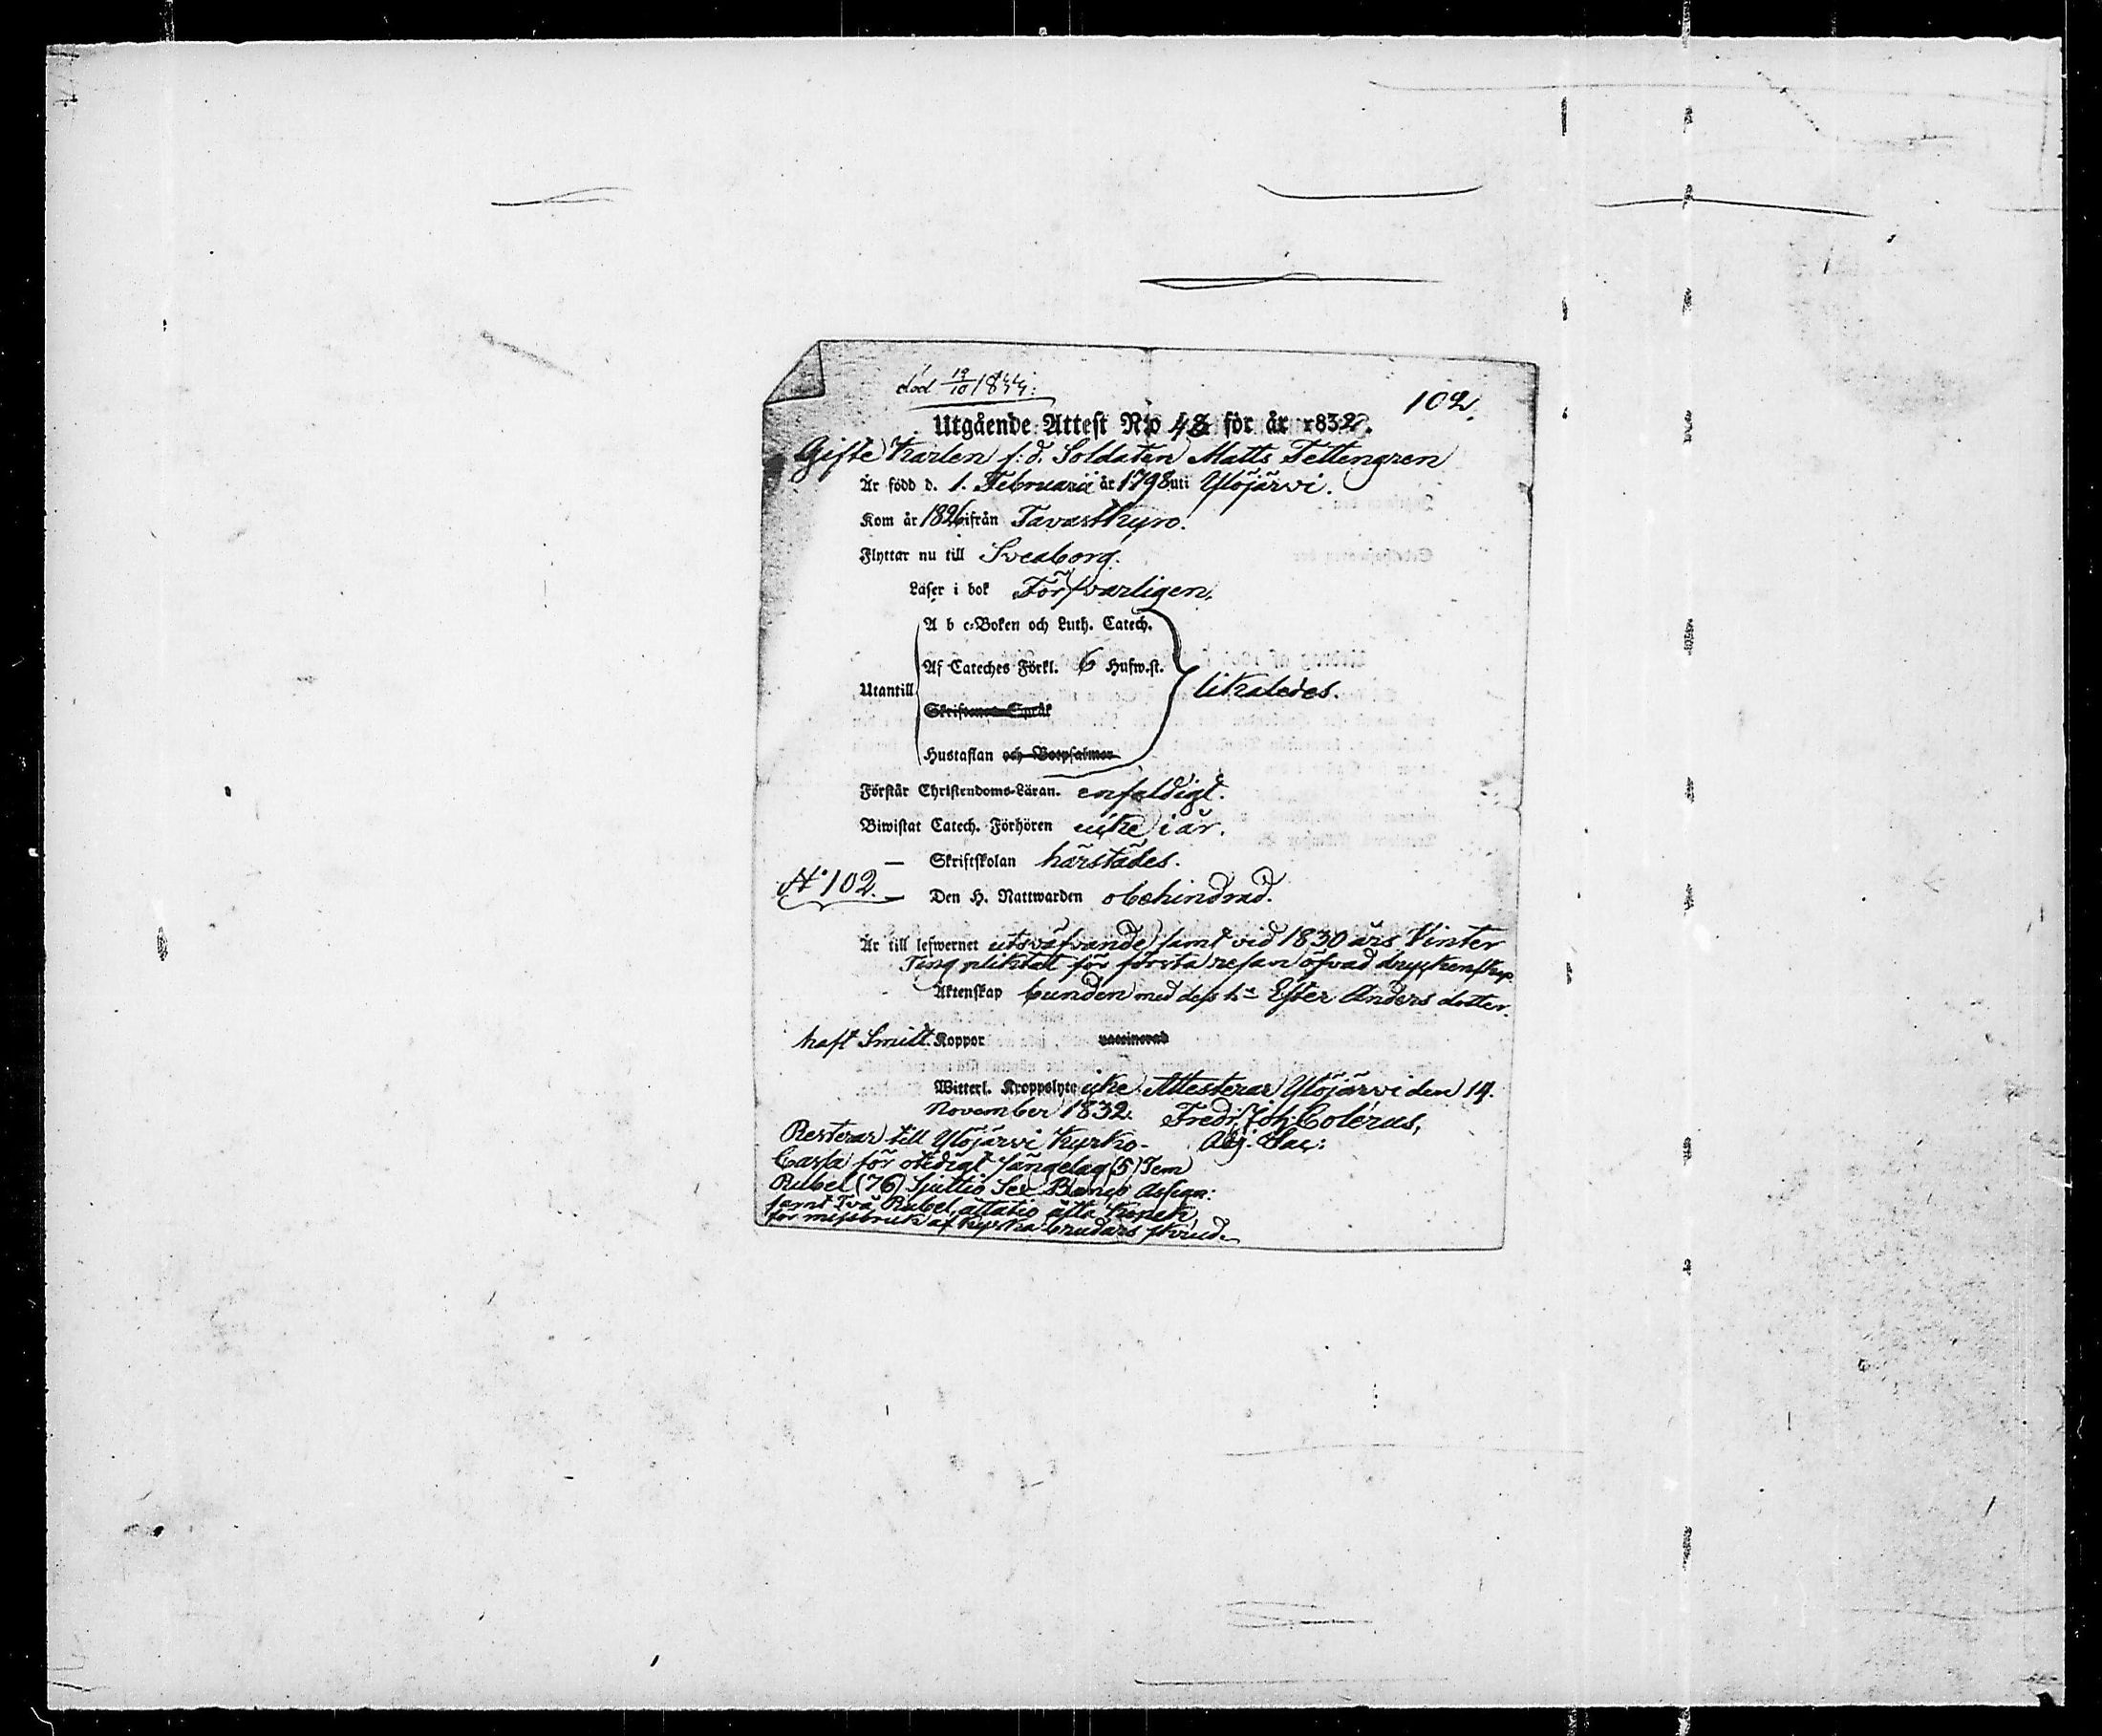 död 19/10 1844:
102.
Utgående Attest N:o 43 för år 1832.
Gifte Karlen f: d. Soldaten Matts Tettengren
Är född d. 1. Februarii år 1798 uti Ylöjärvi.
Kom år 1826 ifrån Tavastkyro.
Flyttar nu till Sveaborg.
Läser i bok Försvarligen.
A b c-Boken och Luth. Catech.
Af Cateches Förkl. 6 Hufw.st.
Utantill likaledes.
Skriftenes Språk
Hustaflan och Botpsalmer
Förstår Christendoms-Läran. enfaldigt.
Biwistat Catech. Förhören icke i år.
— Skriftskolan härstädes.
N:o 102. — Den H. Nattwarden obehindrad.
Är till lefwernet utsväfvande samt vid 1830 års Vinter
Ting pliktat för första resan öfvad dryckenskap
Äktenskap bunden med dess h:u Ester Anders dotter.
haft Smitt. Koppor vaccinerad
Witterl. Kroppslyte icke. Attesterar Ylöjärvi den 14.
November 1832. Fredr. Joh. Colérus,
Adj. Sac:
Resterar till Ylöjärvi Kyrko-
Cassa för oledigt Sängelag (5) Fem
Rubel (76) Sjuttio Sex Banco Assign:
samt Två Rubel, åttatio åtta Kopek
för missbruk af Kyrka brudars skrud.